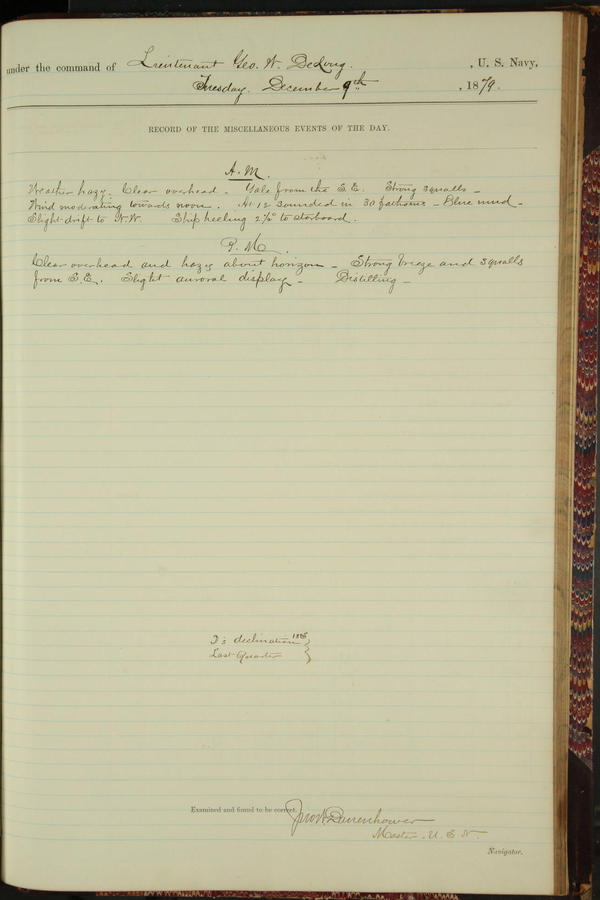 under the command of Lieutenant Geo. W. DeLong. , U. S. Navy,
Tuesday, December 9th , 1879.
RECORD OF THE MISCELLANEOUS EVENTS OF THE DAY.
A. M.
Weather hazy. Clear overhead. Gale from the S. E. Strong squalls –
Wind moderating towards noon. At 12 sounded in 30 fathoms – Blue mud –
Slight drift to N.W. Ship heeling 2½° to starboard.
P. M.
Clear overhead and hazy about horizon – Strong breeze and squalls
from S. E. Slight auroral display – Distilling –
declination
Last Quarter
Examined and found to be correct.
Jno W Danenhower
Master. U. S. N.
Navigator.